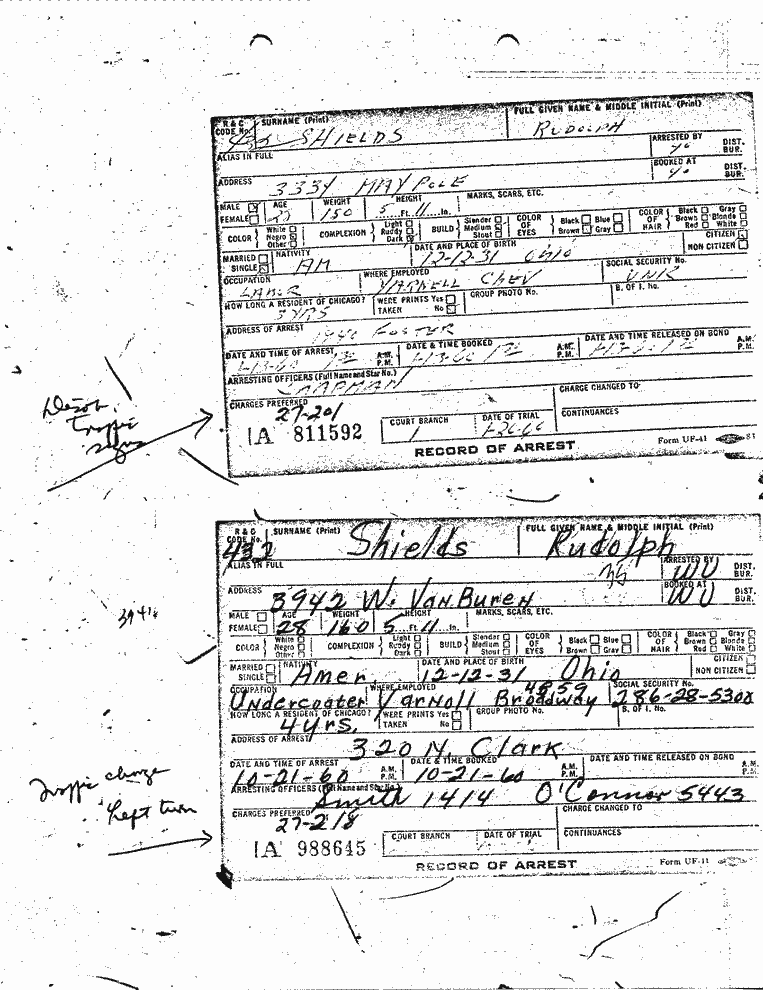 R & C CODE No. SURNAME (Print) FULL GIVEN NAME & MIDDLE INITIAL (Print)
SHIELDS RUDOLPH
ALIAS IN FULL ARRESTED BY DIST. BUR.
BOOKED AT DIST. BUR.
ADDRESS 3334 MAYPOLE
MALE AGE WEIGHT HEIGHT MARKS, SCARS, ETC.
FEMALE 150 5 Ft. 11 In.
COLOR White Negro Other COMPLEXION Light Ruddy Dark BUILD Slender Medium Stout COLOR OF EYES Black Blue Brown Gray COLOR OF HAIR Black Gray Brown Blonde Red White
MARRIED SINGLE NATIVITY AM DATE AND PLACE OF BIRTH 12-12-31 OHIO CITIZEN NON CITIZEN
OCCUPATION LABOR WHERE EMPLOYED YARNELL CHEV SOCIAL SECURITY No. UNK
HOW LONG A RESIDENT OF CHICAGO? 3 YRS WERE PRINTS TAKEN Yes No GROUP PHOTO No. B. OF I. No.
ADDRESS OF ARREST 1940 FOSTER
DATE AND TIME OF ARREST 1-13-60 A.M. P.M. DATE & TIME BOOKED 1-13-60 A.M. P.M. DATE AND TIME RELEASED ON BOND A.M. P.M.
ARRESTING OFFICERS (Full Name and Star No.)
CHAPMAN
CHARGES PREFERRED 27-201 CHARGE CHANGED TO
1A 811592 COURT BRANCH 1 DATE OF TRIAL 1-26-60 CONTINUANCES
RECORD OF ARREST Form UF-41
Disob.
traffic
signs
R & C CODE No. SURNAME (Print) FULL GIVEN NAME & MIDDLE INITIAL (Print)
432 Shields Rudolph
ALIAS IN FULL ARRESTED BY WU DIST. BUR.
BOOKED AT WU DIST. BUR.
ADDRESS 3942 W. Van Buren
3941
MALE AGE WEIGHT HEIGHT MARKS, SCARS, ETC.
FEMALE 28 160 5 Ft. 11 In.
COLOR White Negro Other COMPLEXION Light Ruddy Dark BUILD Slender Medium Stout COLOR OF EYES Black Blue Brown Gray COLOR OF HAIR Black Gray Brown Blonde Red White
MARRIED SINGLE NATIVITY Amer. DATE AND PLACE OF BIRTH 12-12-31 Ohio CITIZEN NON CITIZEN
OCCUPATION WHERE EMPLOYED 4859 SOCIAL SECURITY No.
Undercoater Varnoll Broadway
HOW LONG A RESIDENT OF CHICAGO? 4 yrs. WERE PRINTS TAKEN Yes No GROUP PHOTO No. B. OF I. No.
ADDRESS OF ARREST 320 N. Clark
DATE AND TIME OF ARREST 10-21-60 A.M. P.M. DATE & TIME BOOKED 10-21-60 A.M. P.M. DATE AND TIME RELEASED ON BOND A.M. P.M.
ARRESTING OFFICERS (Full Name and Star No.) Smith 1414 O'Connor 5443
CHARGES PREFERRED 27-218 CHARGE CHANGED TO
1A 988645 COURT BRANCH DATE OF TRIAL CONTINUANCES
RECORD OF ARREST Form UF-41
Traffic charge
Left turn